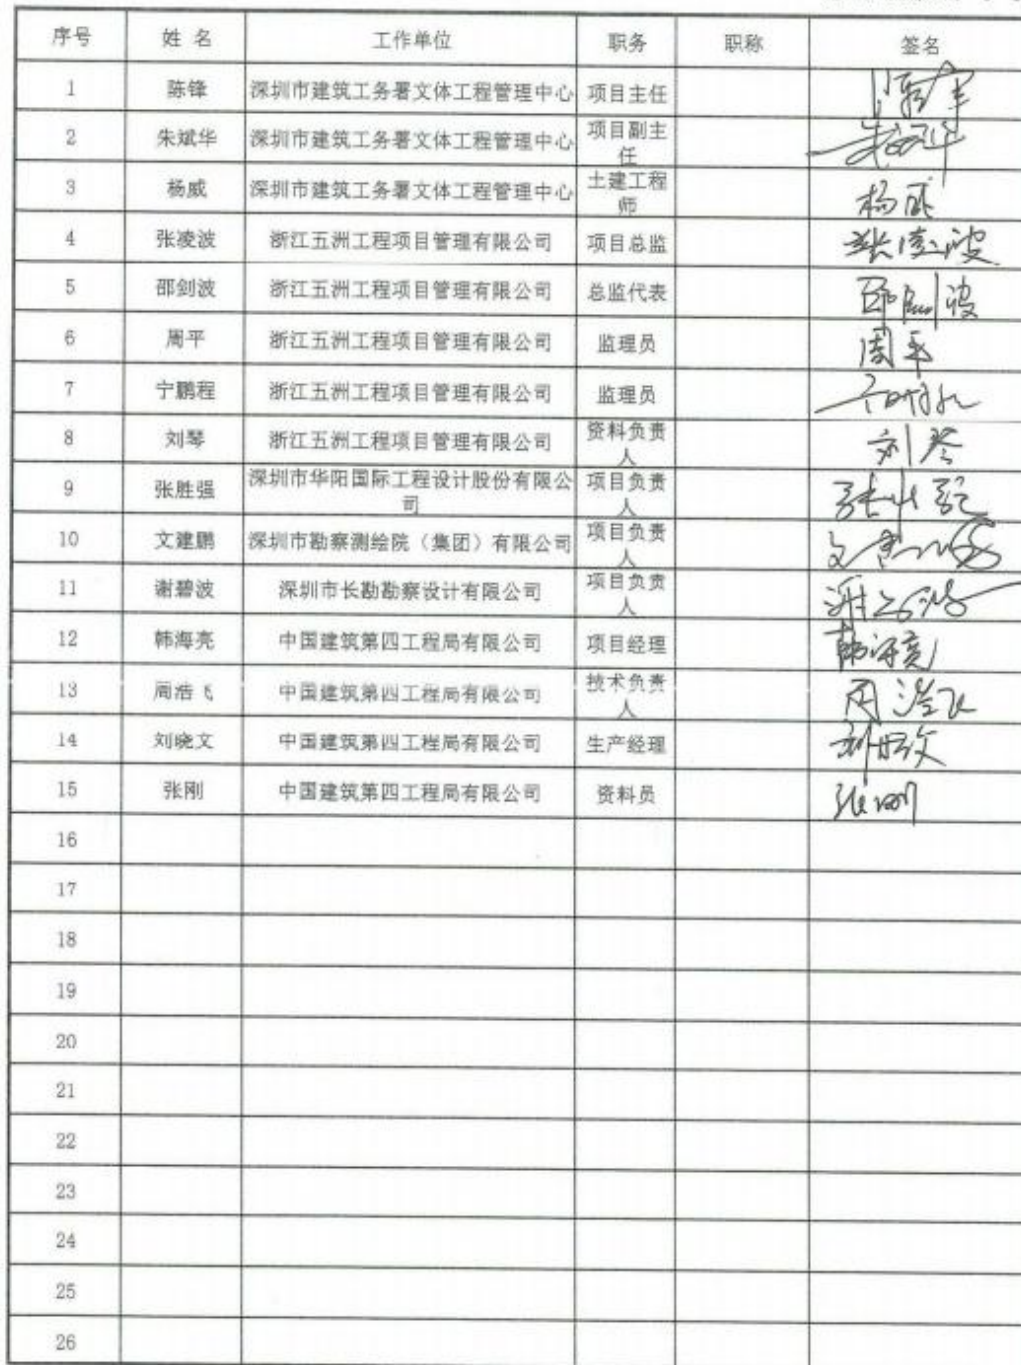 序号 姓 名 工作单位 职务 职称 签名
1 陈锋 深圳市建筑工务署文体工程管理中心 项目主任
2 朱斌华 深圳市建筑工务署文体工程管理中心 项目副主任
3 杨威 深圳市建筑工务署文体工程管理中心 土建工程师 杨威
4 张凌波 浙江五洲工程项目管理有限公司 项目总监 张凌波
5 邵剑波 浙江五洲工程项目管理有限公司 总监代表 邵剑波
6 周平 浙江五洲工程项目管理有限公司 监理员 周平
7 宁鹏程 浙江五洲工程项目管理有限公司 监理员
8 刘琴 浙江五洲工程项目管理有限公司 资料负责人 刘琴
9 张胜强 深圳市华阳国际工程设计股份有限公司 项目负责人
10 文建鹏 深圳市勘察测绘院（集团）有限公司 项目负责人
11 谢碧波 深圳市长勘勘察设计有限公司 项目负责人
12 韩海亮 中国建筑第四工程局有限公司 项目经理 韩海亮
13 周浩飞 中国建筑第四工程局有限公司 技术负责人 周浩飞
14 刘晓文 中国建筑第四工程局有限公司 生产经理 刘晓文
15 张刚 中国建筑第四工程局有限公司 资料员 张刚
16
17
18
19
20
21
22
23
24
25
26